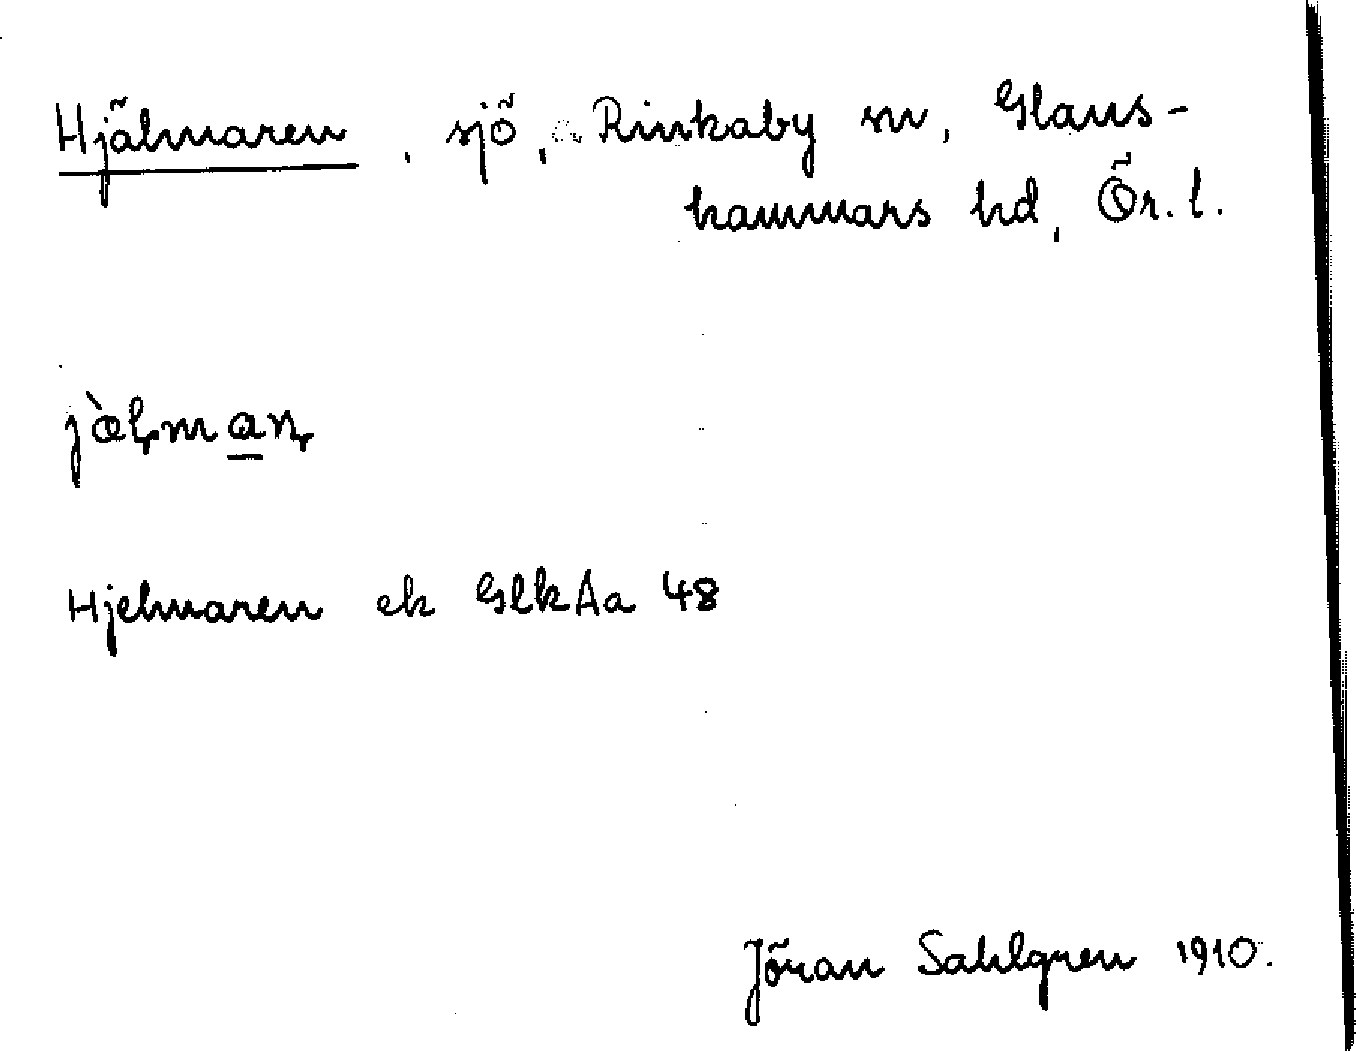 Hjälmaren, sjö, Rinkaby sn, Glans-
hammars hd, Ör. l.
jàlmaṉ
Hjelmaren ek GlkAa 48
Jöran Sahlgren 1910.